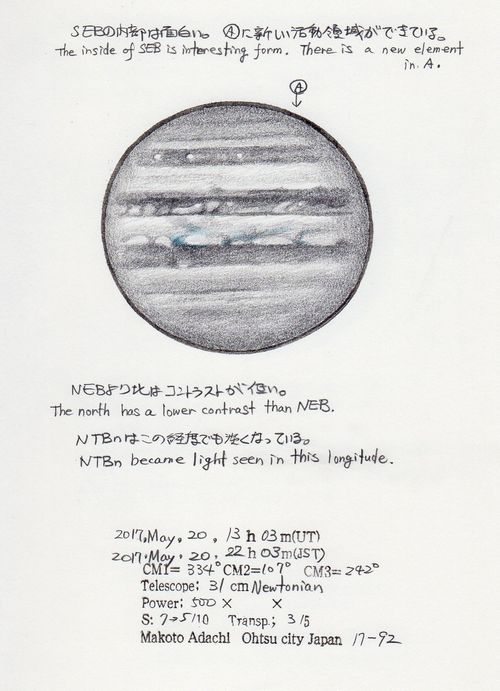 SEBの内部は面白い。 Ⓐに新しい活動領域ができている。
The inside of SEB is interesting form. There is a new element
in A.
A
NEBより北はコントラストが低い。
The north has a lower contrast than NEB.
NTBnはこの経度でも淡くなっている。
NTBn became light seen in this longitude.
2017.May. 20. 13 h 03 m(UT)
2017.May. 20. 22 h 03 m(JST)
CM1= 334° CM2=107° CM3= 242°
Telescope: 31 cm Newtonian
Power: 500 × ×
S: 7→5/10 Transp.; 3/5
Makoto Adachi Ohtsu city Japan 17-92